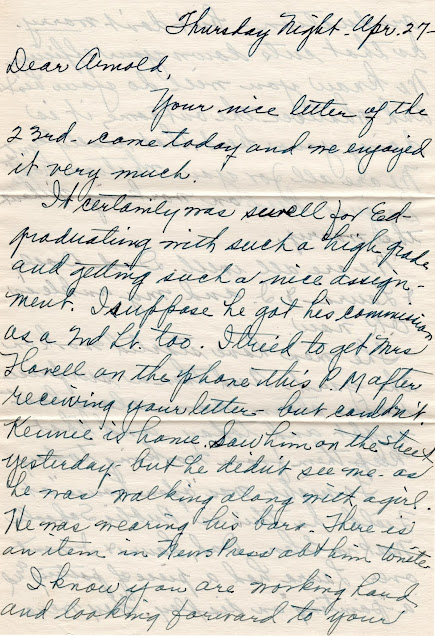 Thursday Night - Apr. 27-
Dear Arnold,
Your nice letter of the
23rd - came today and we enjoyed
it very much.
It certainly was swell for Ed -
graduating with such a high grade
and getting such a nice assign-
ment. I suppose he got his commission
as a 2nd Lt. too. I tried to get Mrs
Howell on the phone this P.M after
receiving your letter - but couldn't
Kennie is home. Saw him on the street
yesterday - but he didn't see me - as
he was walking along with a girl.
He was wearing his bars. There is
an item in News Press abt him tonite
I know you are working hard
and looking forward to your